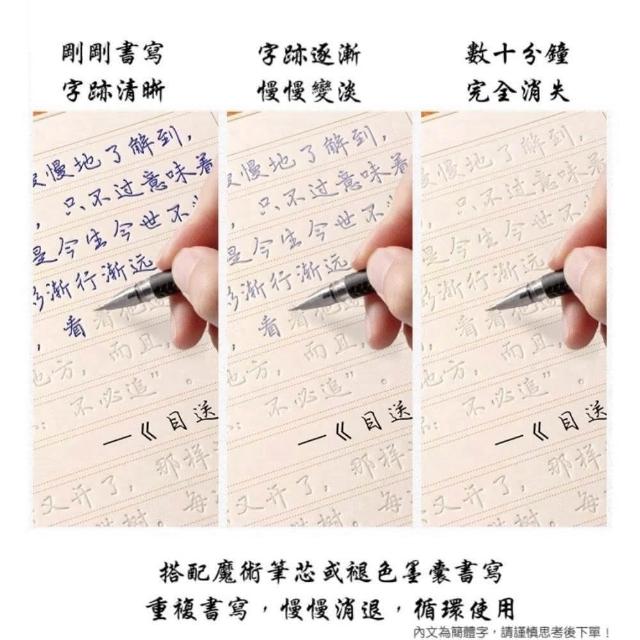 剛剛書寫
字跡清晰
字跡逐漸
慢慢變淡
數十分鐘
完全消失
慢慢地了解到，
，只不过意味着
是今生今世不
渐行渐远
，看着他
地方，而且，
：不必追”。
—《目送
那样
又开了，
树。每
慢慢地了解到，
，只不过意味着
是今生今世不
渐行渐远
，看着他
地方，而且，
：不必追”。
—《目送
那样
又开了，
树。每
慢地了解到，
，只不过意味着
是今生今世不
渐行渐远
，看着他
地方，而且，
：不必追”。
—《目送
那样
又开了，
树。每
搭配魔術筆芯或褪色墨囊書寫
重複書寫，慢慢消退，循環使用
內文為簡體字，請謹慎思考後下單！